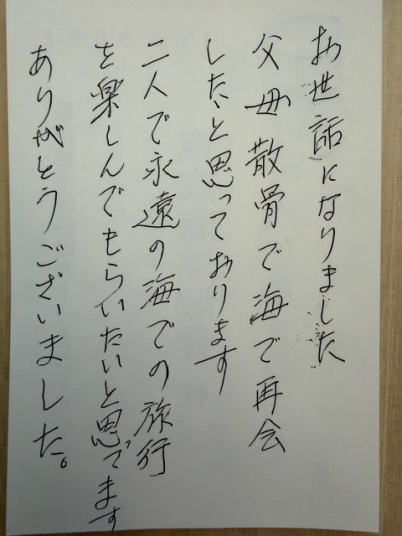 お世話になりました
父母散骨で海で再会
したと思っております
二人で永遠の海での旅行
を楽しんでもらいたいと思でます
ありがとうございました。